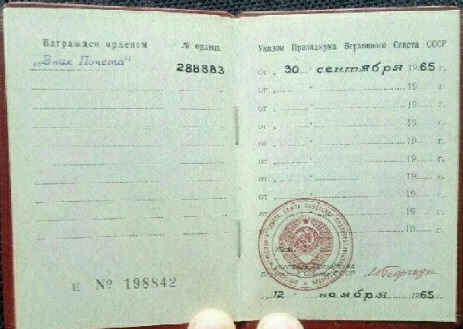 Награжден орденом № ордена
„Знак Почета“ 288883
Н № 198842
Указом Президиума Верховного Совета СССР
от „ 30 “ сентября 1965 г.
от „ “ 19 г.
от „ “ 19 г.
от „ “ 19 г.
от „ “ 19 г.
от „ “ 19 г.
от „ “ 19 г.
от „ “ 19 г.
от „ “ 19 г.
М.П.
Секретарь Президиума
Верховного Совета СССР
„ 12 “ ноября 1965 г.